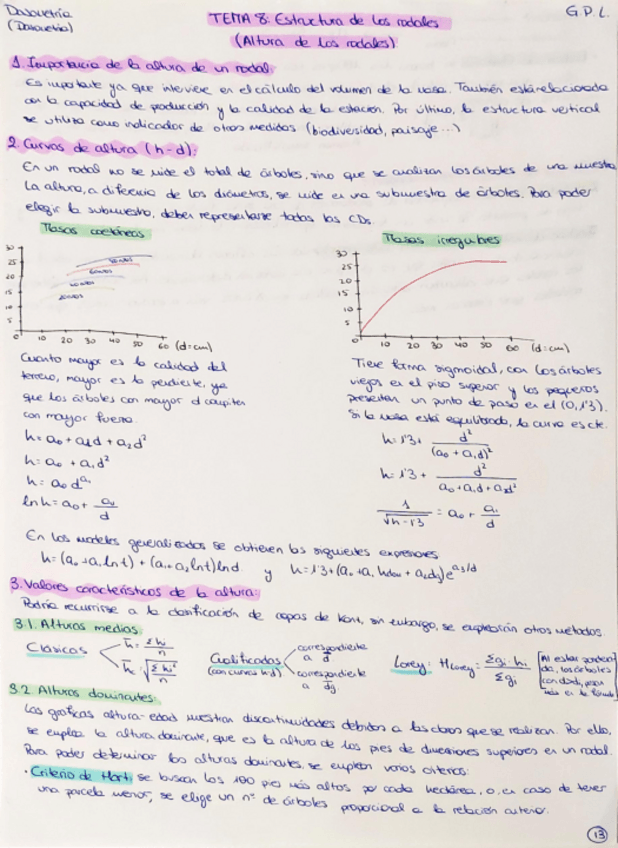 Dasometría
(Dasometría)
TEMA 8: Estructura de los rodales
G.P.L.
(Altura de los rodales)
1. Importancia de la altura de un rodal:
Es importante ya que interviene en el cálculo del volumen de la masa. También está relacionada
con la capacidad de producción y la calidad de la estación. Por último, la estructura vertical
se utiliza como indicador de otros medidas (biodiversidad, paisaje...)
2. Curvas de altura (h-d):
En un rodal no se mide el total de árboles, sino que se analizan los árboles de una muestra
La altura, a diferencia de los diámetros, se mide en una submuestra de árboles. Para poder
elegir la submuestra, deben representarse todas las CDs.
Masas coetáneas
30
25
20
15
10
5
0
10 20 30 40 50 60 (d=cm)
Cuanto mayor es la calidad del
terreno, mayor es la pendiente, ya
que los árboles con mayor d compiten
con mayor fuerza.
h = a₀ + a₁d + a₂d²
h = a₀ + a₁d²
h = a₀ d^a₁
ln h = a₀ + a₁/d
Masas irregulares
30
25
20
15
10
5
0
10 20 30 40 50 60 (d=cm)
Tiene forma sigmoidal, con los árboles
viejos en el piso superior y los pequeños
presentan un punto de paso en el (0,1'3).
Si la masa está equilibrada, la curva es cte.
h = 1'3 + d²/(a₀ + a₁d)²
h = 1'3 + d²/(a₀ + a₁d + a₂d²)
1/√(h-1'3) = a₀ + a₁/d
En los modelos generalizados se obtienen las siguientes expresiones
h = (a₀ + a₁ ln t) + (a₁ + a₂ ln t) ln d y h = 1'3 + (a₀ + a₁ hdom + a₂dg) e^(a₃/d)
3. Valores característicos de la altura:
Podría recurrirse a la clasificación de copas de Kraft, sin embargo, se emplearán otros métodos.
3.1. Alturas medias:
Clásicas
h̄ = Σhi/n
h̄c = √(Σhi²/n)
Cualificadas
(con curvas h-d)
correspondiente
a d̄
correspondiente
a dg
Lorey: H Lorey = Σgi·hi/Σgi
[Al estar pondera-
da, los árboles
con d↑, pesan
más en la fórmula]
3.2. Alturas dominantes:
Las gráficas altura-edad muestran discontinuidades debidos a las claras que se realizan. Por ello,
se emplea la altura dominante, que es la altura de los pies de dimensiones superiores en un rodal.
Para poder determinar las alturas dominantes, se emplean varios criterios:
· Criterio de Hart: se buscan los 100 pies más altos por cada hectárea, o, en caso de tener
una parcela menor, se elige un nº de árboles proporcional a la relación anterior.
13